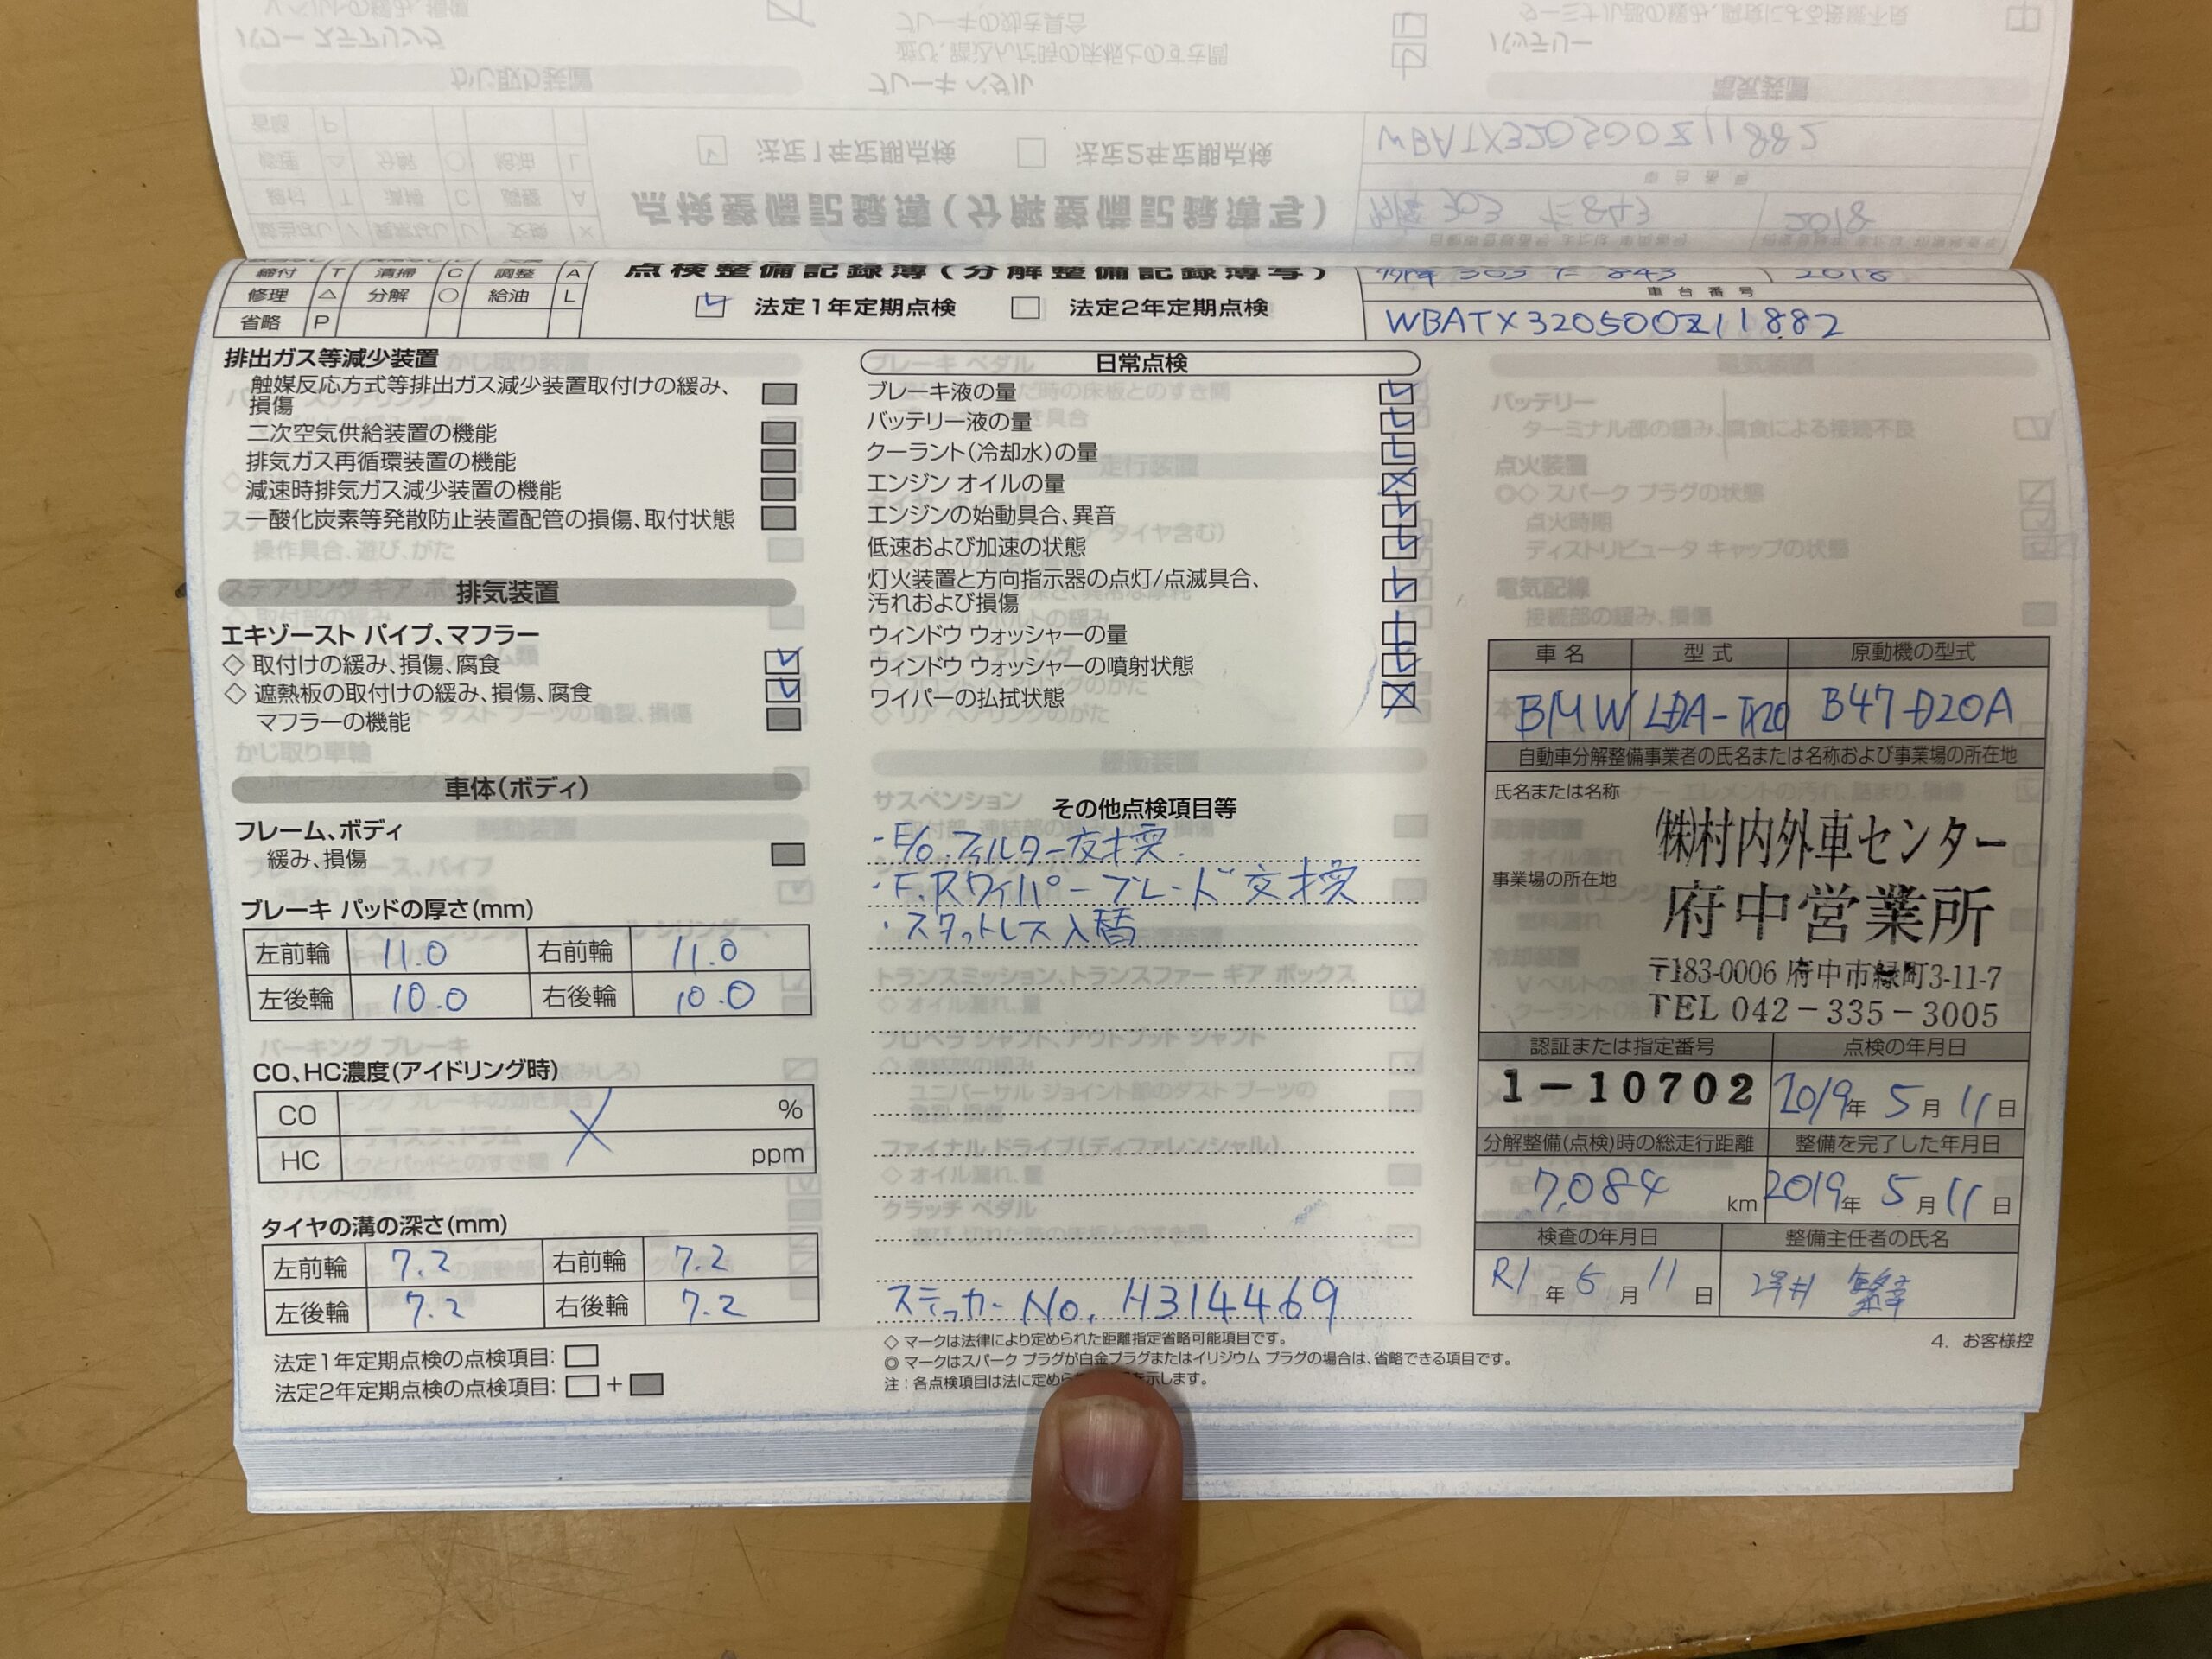 締付 T 清掃 C 調整 A
修理 △ 分解 ○ 給油 L
省略 P
点検整備記録簿(分解整備記録簿写)
法定1年定期点検 法定2年定期点検
303 た 843 2018
車台番号
WBATX320500Z11882
排出ガス等減少装置
触媒反応方式等排出ガス減少装置取付けの緩み、
損傷
二次空気供給装置の機能
排気ガス再循環装置の機能
減速時排気ガス減少装置の機能
一酸化炭素等発散防止装置配管の損傷、取付状態
排気装置
エキゾースト パイプ、マフラー
◇ 取付けの緩み、損傷、腐食
◇ 遮熱板の取付けの緩み、損傷、腐食
マフラーの機能
車体(ボディ)
フレーム、ボディ
緩み、損傷
ブレーキ パッドの厚さ(mm)
左前輪 11.0 右前輪 11.0
左後輪 10.0 右後輪 10.0
CO、HC濃度(アイドリング時)
CO %
HC ppm
タイヤの溝の深さ(mm)
左前輪 7.2 右前輪 7.2
左後輪 7.2 右後輪 7.2
法定1年定期点検の点検項目:
法定2年定期点検の点検項目: +
日常点検
ブレーキ液の量
バッテリー液の量
クーラント(冷却水)の量
エンジン オイルの量
エンジンの始動具合、異音
低速および加速の状態
灯火装置と方向指示器の点灯/点滅具合、
汚れおよび損傷
ウィンドウ ウォッシャーの量
ウィンドウ ウォッシャーの噴射状態
ワイパーの払拭状態
その他点検項目等
・E/O.フィルター交換.
・F.Rワイパーブレード交換
・スタットレス入替
ステッカーNo. H314469
◇ マークは法律により定められた距離指定省略可能項目です。
◎ マークはスパーク プラグが白金プラグまたはイリジウム プラグの場合は、省略できる項目です。
注:各点検項目は法に定め を示します。
車名 型式 原動機の型式
BMW LDA-TX20 B47D20A
自動車分解整備事業者の氏名または名称および事業場の所在地
氏名または名称
㈱村内外車センター
事業場の所在地
府中営業所
〒183-0006 府中市緑町3-11-7
TEL 042-335-3005
認証または指定番号 点検の年月日
1-10702 2019年 5月 11日
分解整備(点検)時の総走行距離 整備を完了した年月日
7,084 km 2019年 5月 11日
検査の年月日 整備主任者の氏名
R1年 5月 11日
4. お客様控